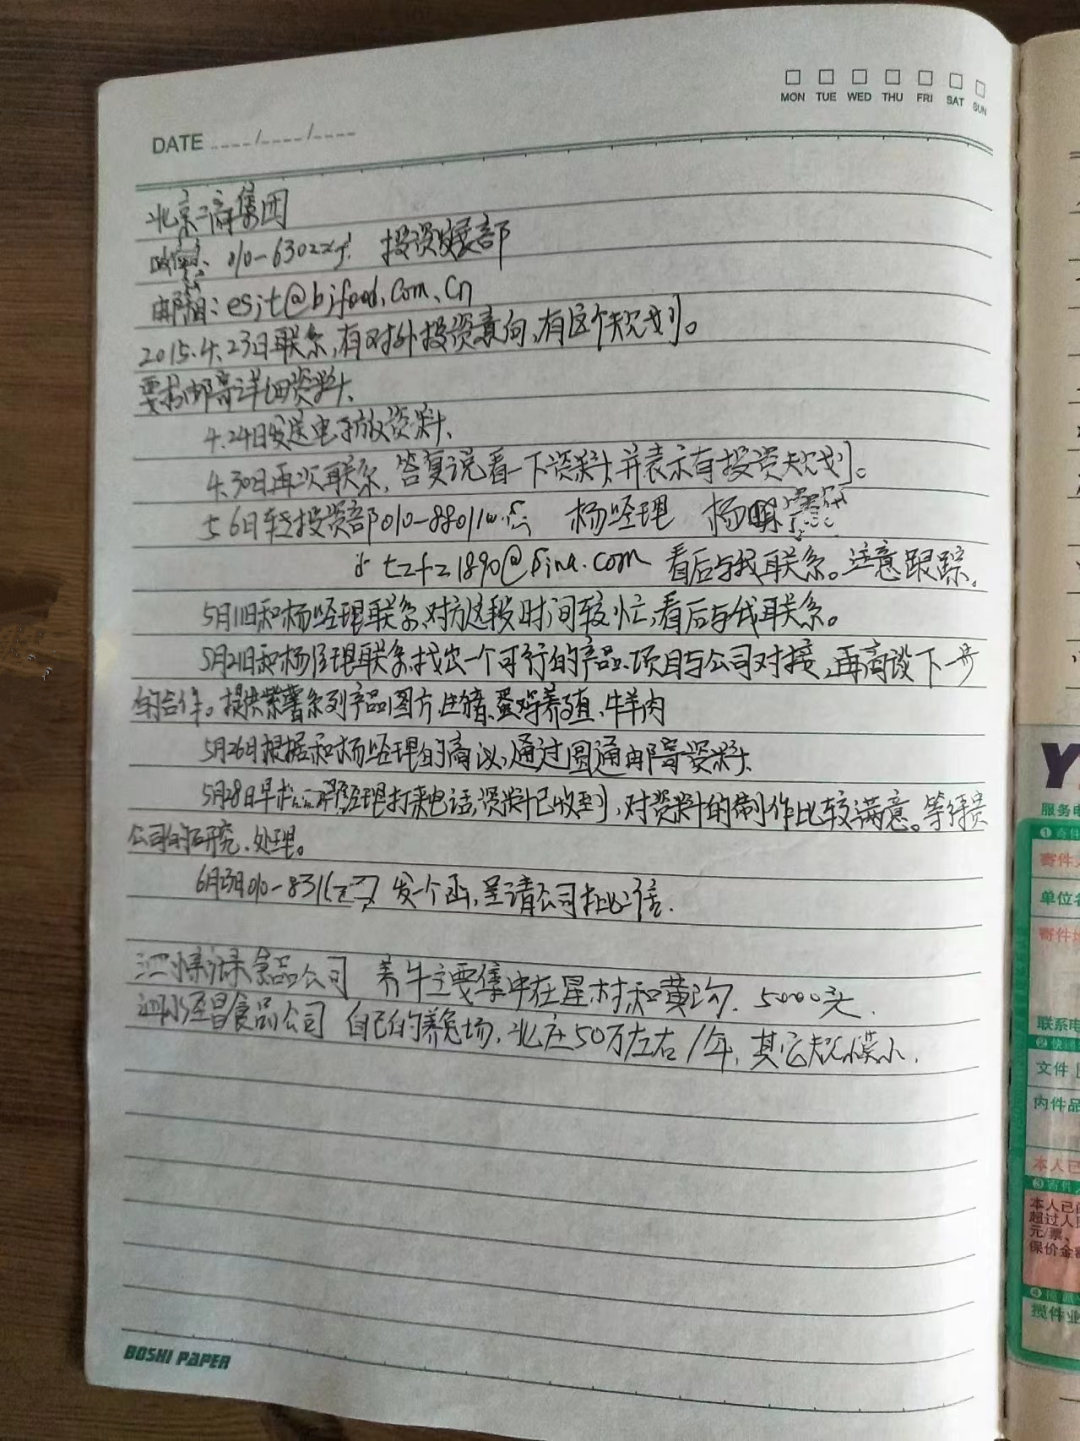 MON TUE WED THU FRI SAT SUN
DATE ____/____/____
北京二商集团
010-6302 投资发展部
邮箱:esjt@bjfood.com.cn
2015.4.23日联系,有对外投资意向,有这个规划。
要求邮寄详细资料、
4.24日发送电子版资料、
4.30日再次联系,答复说看一下资料,并表示有投资规划。
5.6日转投资部010-8801 杨经理 杨
tzfz1890@sina.com 看后与我联系。注意跟踪。
5月11日和杨经理联系,对方这段时间较忙,看后与我联系。
5月21日和杨经理联系,找出一个可行的产品、项目与公司对接,再商谈下一步
的合作。提供紫薯系列产品图片,生猪、蛋鸡养殖、牛羊肉
5月26日根据和杨经理的商议,通过圆通邮寄资料、
5月28日早 经理打来电话,资料已收到,对资料的制作比较满意。等待贵
公司的研究、处理。
010-831 发一个函,呈请公司
食品公司 养牛主要集中在星村和黄沟、5000头、
食品公司 自己的养兔场,北庄50万左右/年,其它规模小.
BOSHI PAPER
Y
服务电
寄件
单位名
寄件地
联系电
文件
内件品
本人已
本人已
超过人
元/票、
保价金
揽件业